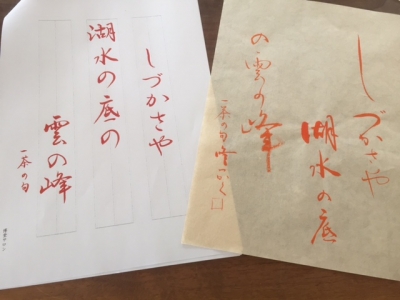 しづかさや
湖水の底の
雲の峰
一茶の句
しづかさや
湖水の底
の雲の峰
一茶の句